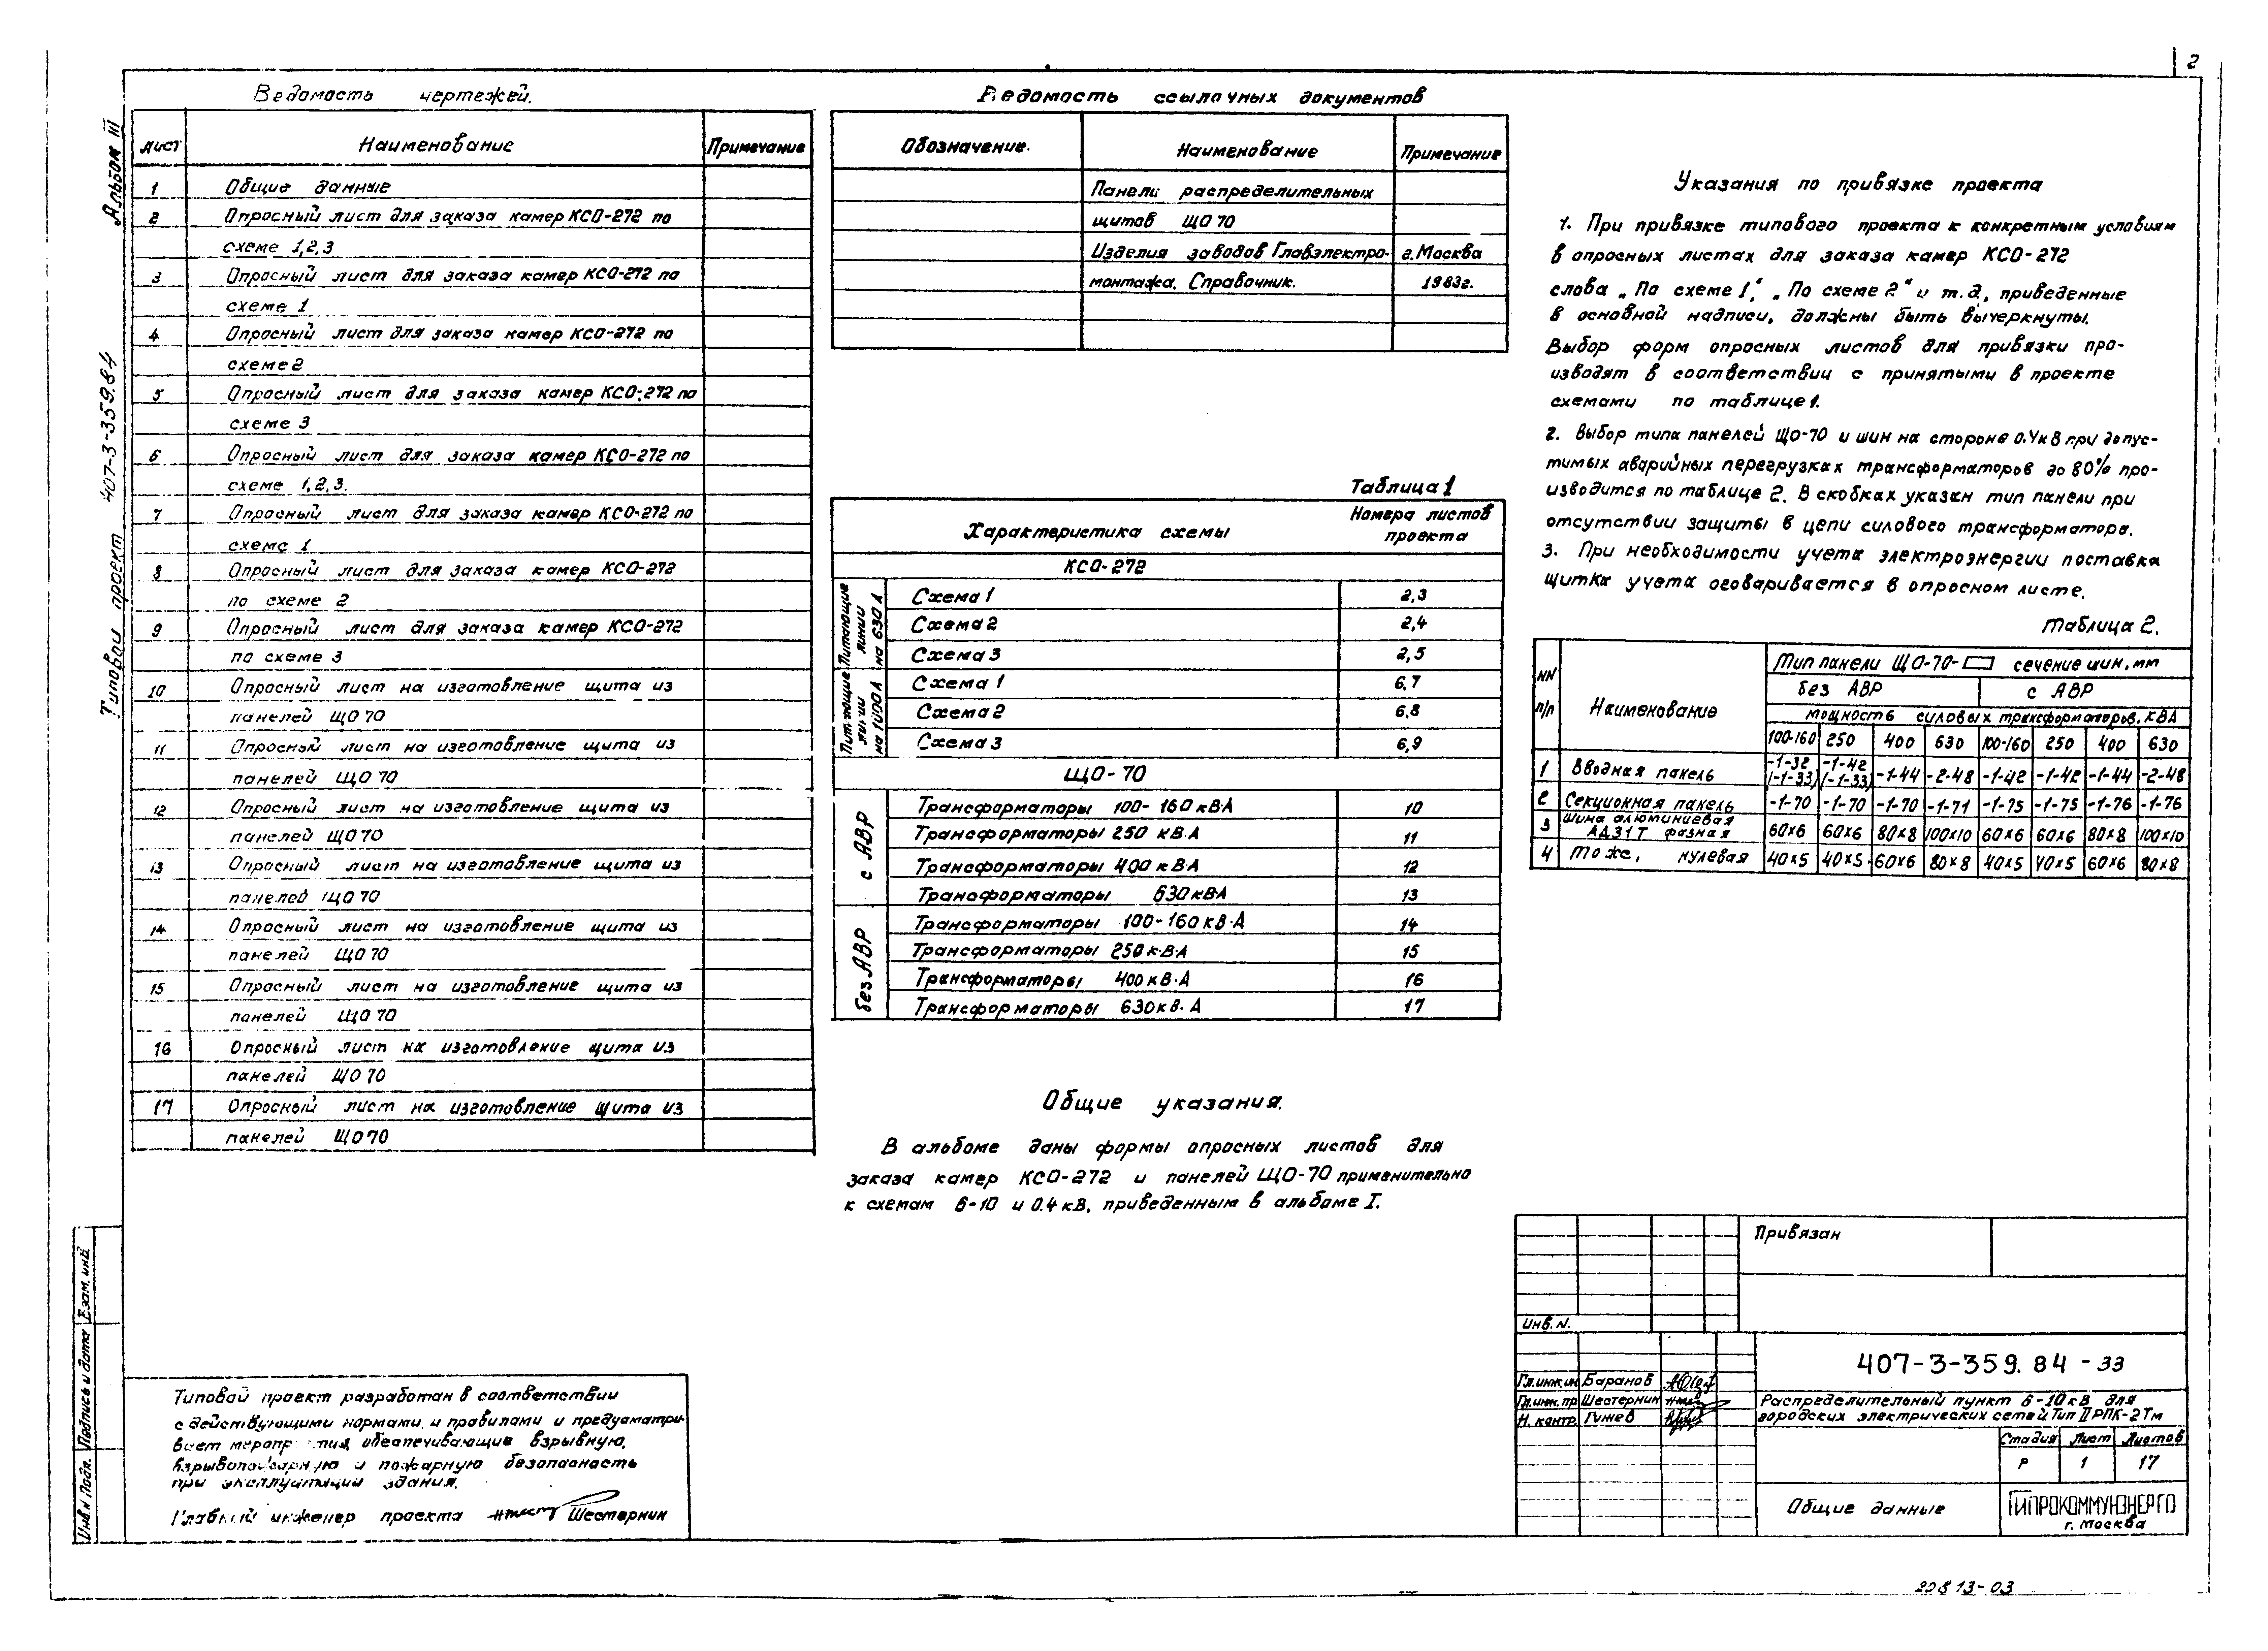 2
Альбом III
Типовой проект 407-3-359.84
Ведомость чертежей.
Лист Наименование Примечание
1 Общие данные
2 Опросный лист для заказа камер КСО-272 по
схеме 1,2,3
3 Опросный лист для заказа камер КСО-272 по
схеме 1
4 Опросный лист для заказа камер КСО-272 по
схеме 2
5 Опросный лист для заказа камер КСО-272 по
схеме 3
6 Опросный лист для заказа камер КСО-272 по
схеме 1,2,3.
7 Опросный лист для заказа камер КСО-272 по
схеме 1
8 Опросный лист для заказа камер КСО-272
по схеме 2
9 Опросный лист для заказа камер КСО-272
по схеме 3
10 Опросный лист на изготовление щита из
панелей ЩО 70
11 Опросный лист на изготовление щита из
панелей ЩО 70
12 Опросный лист на изготовление щита из
панелей ЩО 70
13 Опросный лист на изготовление щита из
панелей ЩО 70
14 Опросный лист на изготовление щита из
панелей ЩО 70
15 Опросный лист на изготовление щита из
панелей ЩО 70
16 Опросный лист на изготовление щита из
панелей ЩО 70
17 Опросный лист на изготовление щита из
панелей ЩО 70
Ведомость ссылочных документов
Обозначение. Наименование Примечание
Панели распределительных
щитов ЩО 70
Изделия заводов Главэлектро- г. Москва
монтажа. Справочник. 1983г.
Таблица 1
Характеристика схемы Номера листов
проекта
КСО-272
Питающие линии на 630 А
Схема 1 2,3
Схема 2 2,4
Схема 3 2,5
Питающие линии на 1000 А
Схема 1 6,7
Схема 2 6,8
Схема 3 6,9
ЩО-70
с АВР
Трансформаторы 100-160 кВ·А 10
Трансформаторы 250 кВ.А 11
Трансформаторы 400 кВ·А 12
Трансформаторы 630 кВ·А 13
без АВР
Трансформаторы 100-160 кВ·А 14
Трансформаторы 250 кВ·А 15
Трансформаторы 400 кВ·А 16
Трансформаторы 630 кВ·А 17
Общие указания.
В альбоме даны формы опросных листов для
заказа камер КСО-272 и панелей ЩО-70 применительно
к схемам 6-10 и 0.4 кВ, приведенным в альбоме I.
Указания по привязке проекта
1. При привязке типового проекта к конкретным условиям
в опросных листах для заказа камер КСО-272
слова „По схеме 1“, „По схеме 2“ и т.д., приведенные
в основной надписи, должны быть вычеркнуты.
Выбор форм опросных листов для привязки про-
изводят в соответствии с принятыми в проекте
схемами по таблице 1.
2. Выбор типа панелей ЩО-70 и шин на стороне 0.4кВ при допус-
тимых аварийных перегрузках трансформаторов до 80% про-
изводится по таблице 2. В скобках указан тип панели при
отсутствии защиты в цепи силового трансформатора.
3. При необходимости учета электроэнергии поставка
щитка учета оговаривается в опросном листе.
Таблица 2.
NN п/п Наименование Тип панели ЩО-70- сечение шин, мм
без АВР с АВР
мощность силовых трансформаторов, кВА
100-160 250 400 630 100-160 250 400 630
1 Вводная панель -1-32 (-1-33) -1-42 (-1-33) -1-44 -2-48 -1-42 -1-42 -1-44 -2-48
2 Секционная панель -1-70 -1-70 -1-70 -1-71 -1-75 -1-75 -1-76 -1-76
3 Шина алюминиевая АД31Т фазная 60×6 60×6 80×8 100×10 60×6 60×6 80×8 100×10
4 То же, нулевая 40×5 40×5 60×6 80×8 40×5 40×5 60×6 80×8
Типовой проект разработан в соответствии
с действующими нормами и правилами и предусматри-
вает мероприятия, обеспечивающие взрывную,
взрывопожарную и пожарную безопасность
при эксплуатации здания.
Главный инженер проекта Шестернин
Инв.N Подл. Подпись и дата Взам. инв.
Привязан
Инв. N.
407-3-359.84 -ЭЗ
Гл.инж.ин Баранов
Гл.инж.пр Шестернин
Н. контр. Гужев
Распределительный пункт 6-10кВ для
городских электрических сетей Тип II РПК-2Тм
Стадия Лист Листов
Р 1 17
Общие данные
ГИПРОКОММУНЭНЕРГО
г. Москва
20813-03